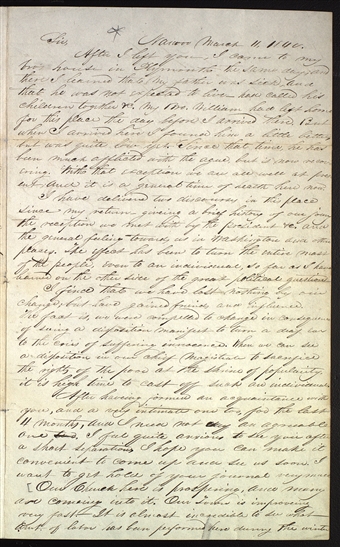 Sir, Nauvoo March 11, 1840.
After I left you, I came to my
own house in Plymouth the same day, and
there I learned that my father was sick and
that he was not expected to live and called his
children together &c. My Bro. William had left home
for this place the day before I arrived there. But
when I arrived here I found him a little better,
but was quite low yet. Since that time he has
been much afflicted with the ague but is now recov-
ering. With that exception we are all well at pres-
ent. And it is a general time of health here now
I have delivered two discourses, in this place
since my return, giving a brief history of our jour
the reception we met with by the president &c. and
the general feeling towards us in Washington and other
places. The effect has been to turn the entire mass
of the people, even to an individual, so far as I have
learned on the other side of the great political question.
I find that we have lost nothing by our
change, but have gained friends and influence.
In fact is, we were compelled to change in consequence
of seeing a disposition manifest to turn a deaf ear
to the cries of suffering innocence. When we can see
a disposition in our chief Magistrate to sacrifice
the rights of the poor at the shrine of popularity,
it is high time to cast off such an individual.
After having formed an acquaintance with
you, and a very intimate one too, for the last
months, and I need not say an agreeable
one I feel quite anxious to see you after
a short separation. I hope you can make it
convenient to come up and see us soon. I
want to get hold of your journal very much
Our Church here is prospering, and many
are coming into it. Our town is improving
very fast. It is almost incredible to see what
of labor has been performed here during the winter